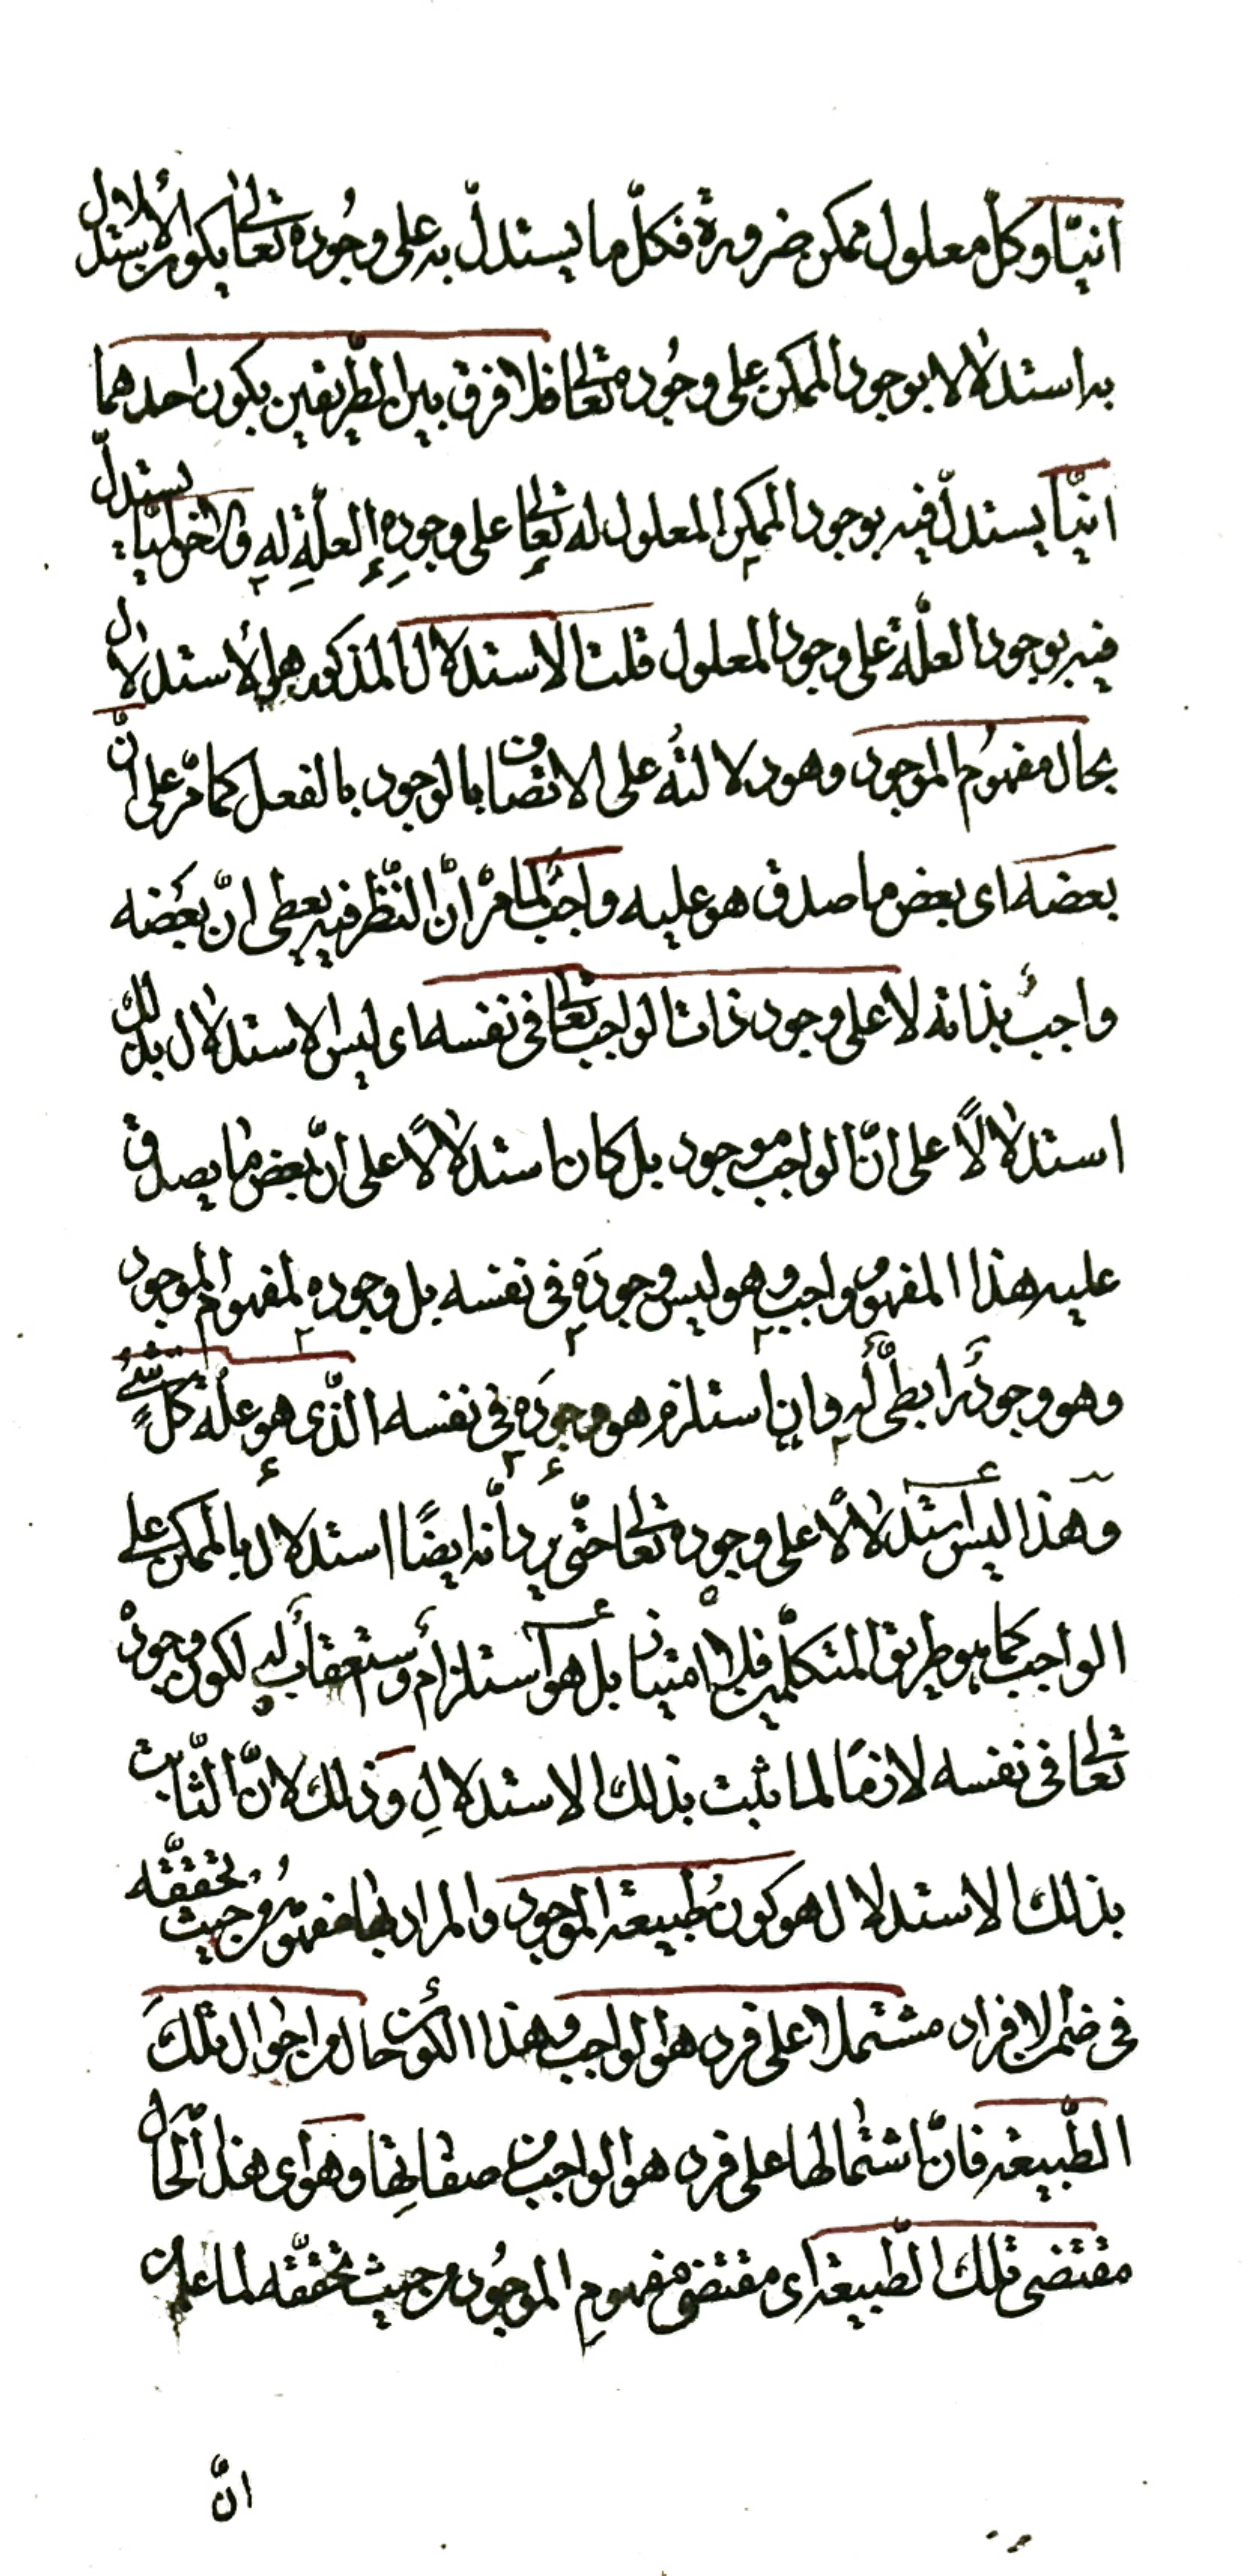 انيّا وكلّ معلول ممكن ضرورة فكلّ ما يستدلّ به على وجُوده تعالى يكون الأستدلال
به استدلالا بوجود الممكن على وجُوده تعالى فلا فرق بين الطّريقين بكون احدهما
انيّا يستدلّ فيه بوجود الممكن المعلول له تعالى على وجودِهِ العلّةِ لهِ والاخر لميّا يستدلّ
فيه بوجود العلّة على وجود المعلول قلت الاستدلال المذكور هو الأستدلال
بحال مفهُوم الموجود وهو دلالتُه على الاتصاف بالوجود بالفعل كما مرّ على انّ
بعضه اى بعض ما صدق هو عليه واجبٌ لما مرّ انّ النّظر فيه يعطى انّ بعَضه
واجبٌ بذاته لا على وجود ذات الواجب تعالى فى نفسه اى ليس الاستدلال بذلك
استدلالًا على انّ الواجب موجود بل كان استدلالًا على انّ بعض ما يصدق
عليه هذا المفهوم واجب وهو ليس وجودَه فى نفسه بل وجوده لمفهوم الموجود
وهو وجودٌ رابطىٌّ لهِ وان استلزم هو وجودَه فى نفسه الّذى هو علّة كلّ شئٍ
وهذا ليس استدلالًا على وجوده تعالى حتّى يرد أنّه ايضًا استدلال بالممكن على
الواجب كما هو طريق المتكلّمين فلا امتياز بل هو استلزام واستعقاب له لكون وجوده
تعالى فى نفسه لازمًا لما يثبت بذلك الاستدلالِ وذلك لانّ الثّابت
بذلك الاستدلال هو كونُ طبيعة الموجود والمراد بها مفهُومُه من حيث تحققّه
فى ضمن الافراد مشتملا على فرد هو الواجب وهذا الكونُ حال من احوال تلكَ
الطّبيعة فانّ اشتمالها على فرد هو الواجب من صفاتِها وهو اى هذا الحال
مقتضى تلك الطّبيعة اى مقتضى مفهومِ الموجُود من حيث تحققّه لما علمت
انّ